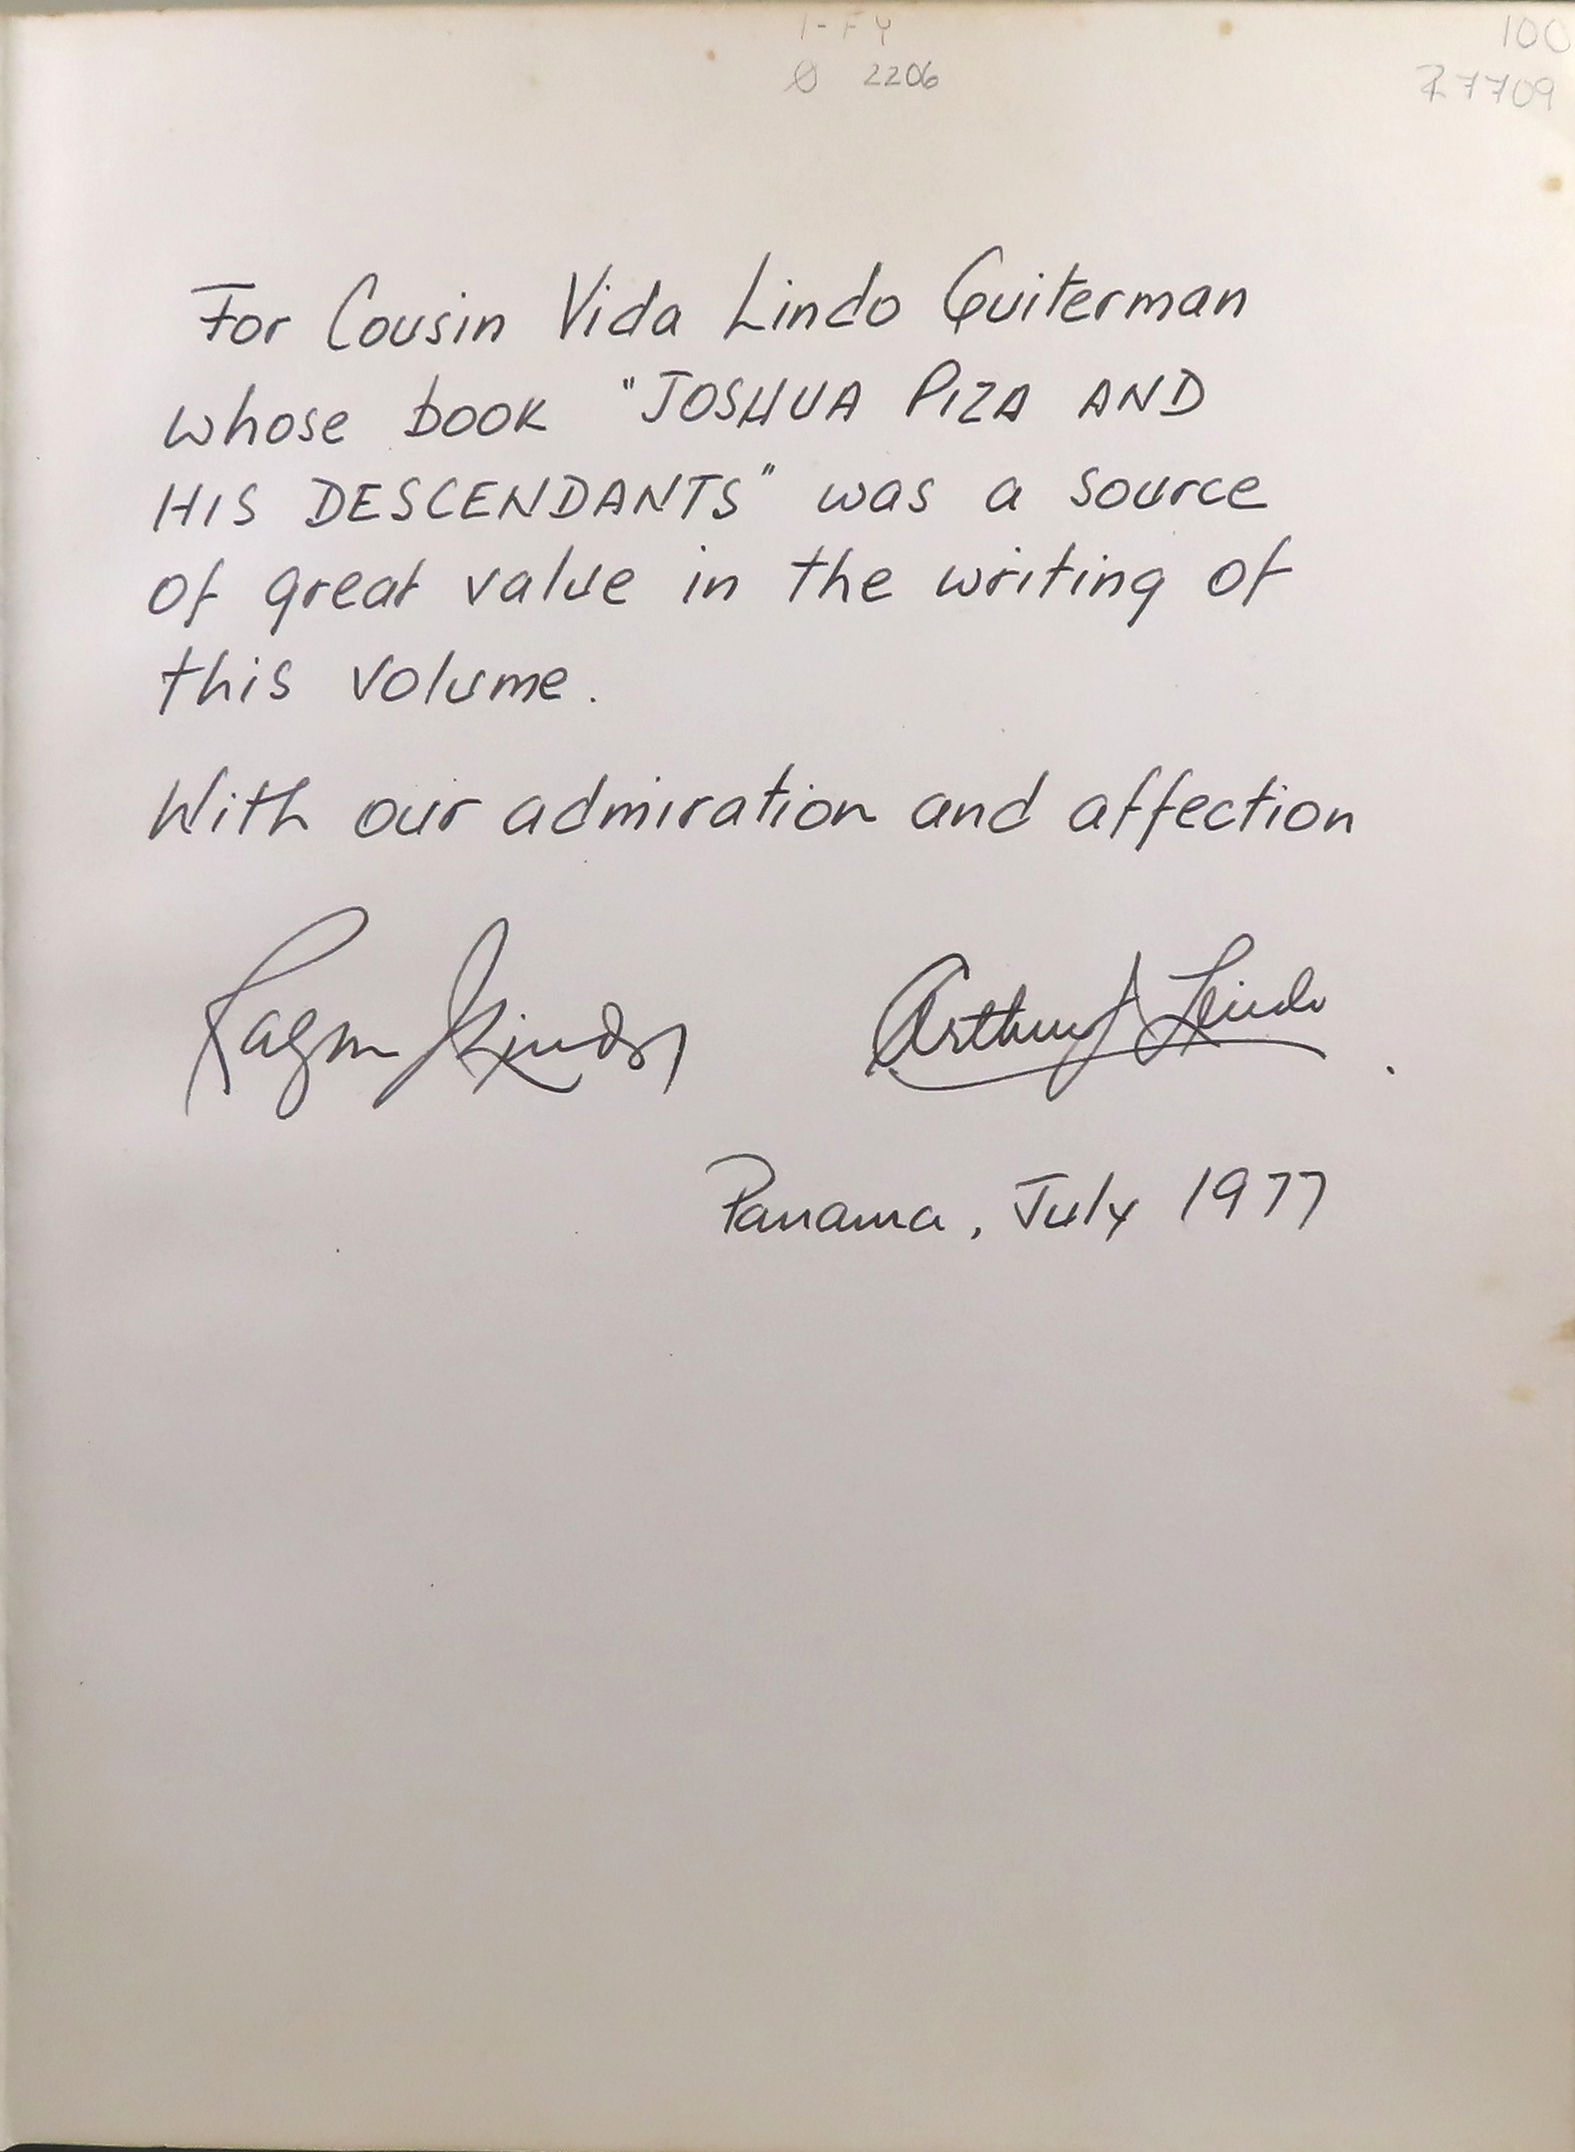 2206
100
7709
For Cousin Vida Lindo Guiterman
whose book "JOSHUA PIZA AND
HIS DESCENDANTS" was a source
of great value in the writing of
this volume.
With our admiration and affection
Lindo
Arthur Lindo
Panama, July 1977